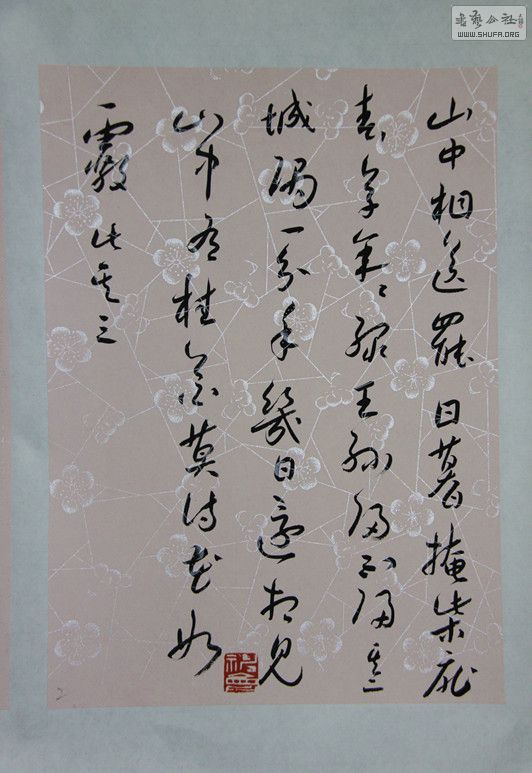 山中相送罷日暮掩柴扉
春草年々綠王孫歸不歸 其二
城隅一分手幾日還相見
山中有桂花莫待花如
霰 此其三
書藝公社
WWW.SHUFA.ORG